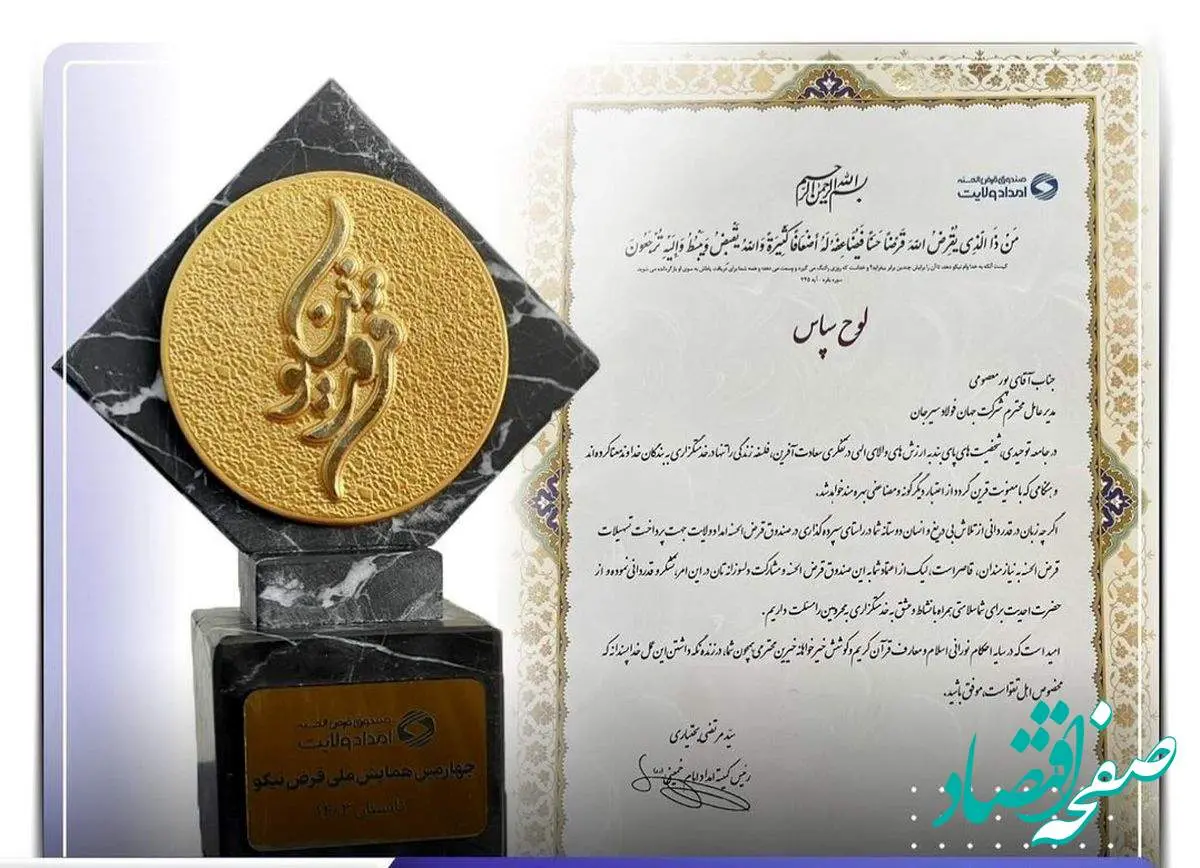 قرض نیکو
صندوق قرض الحسنه
امداد ولایت
چهارمین همایش ملی قرض نیکو
تابستان ۱۴۰۳
صندوق قرض الحسنه
امداد ولایت
بسم الله الرحمن الرحیم
مَنْ ذَا الَّذِی یُقْرِضُ اللهَ قَرْضًا حَسَنًا فَیُضَاعِفَهُ لَهُ أَضْعَافًا كَثِیرَةً وَاللهُ یَقْبِضُ وَیَبْسُطُ وَإِلَیْهِ تُرْجَعُونَ
کیست آنکه به خدا وام نیکو دهد، تا آن را برایش چندین برابر بیفزاید؟ و خداست که روزی را تنگ می گیرد و وسعت می دهد؛ و همه شما برای دریافت پاداش به سوی او بازگردانده می شوید.
سوره بقره - آیه ۲۴۵
لوح سپاس
جناب آقای پورمعصومی
مدیرعامل محترم شرکت جهان فولاد سیرجان
در جامعه توحیدی، شخصیت های پای بند به ارزش های والای الهی در تفکری سعادت آفرین، فلسفه زندگی را تنها در خدمتگزاری به بندگان خداوند معنا کرده اند
و هنگامی که با معنویت قرین گردد از اعتبار دیگرگونه و مضاعفی بهره مند خواهد شد.
اگر چه زبان در قدردانی از تلاش بی دریغ و انسان دوستانه شما در راستای سپرده گذاری در صندوق قرض الحسنه امداد ولایت جهت پرداخت تسهیلات
قرض الحسنه به نیازمندان، قاصر است، لیک از اعتماد شما به این صندوق قرض الحسنه و مشارکت دلسوزانه تان در این امر، تشکر و قدردانی نموده و از
حضرت احدیت برای شما سلامتی همراه با نشاط و عشق به خدمتگزاری محرومین را مسئلت داریم.
امید است که در سایه احکام نورانی اسلام و معارف قرآن کریم و کوشش خیرخواهانه خیرین محترمی همچون شما، در زنده نگه داشتن این عمل خداپسندانه که
مخصوص اهل تقوا است، موفق باشید.
سید مرتضی بختیاری
رئیس کمیته امداد امام خمینی (ره)
صفحه اقتصاد